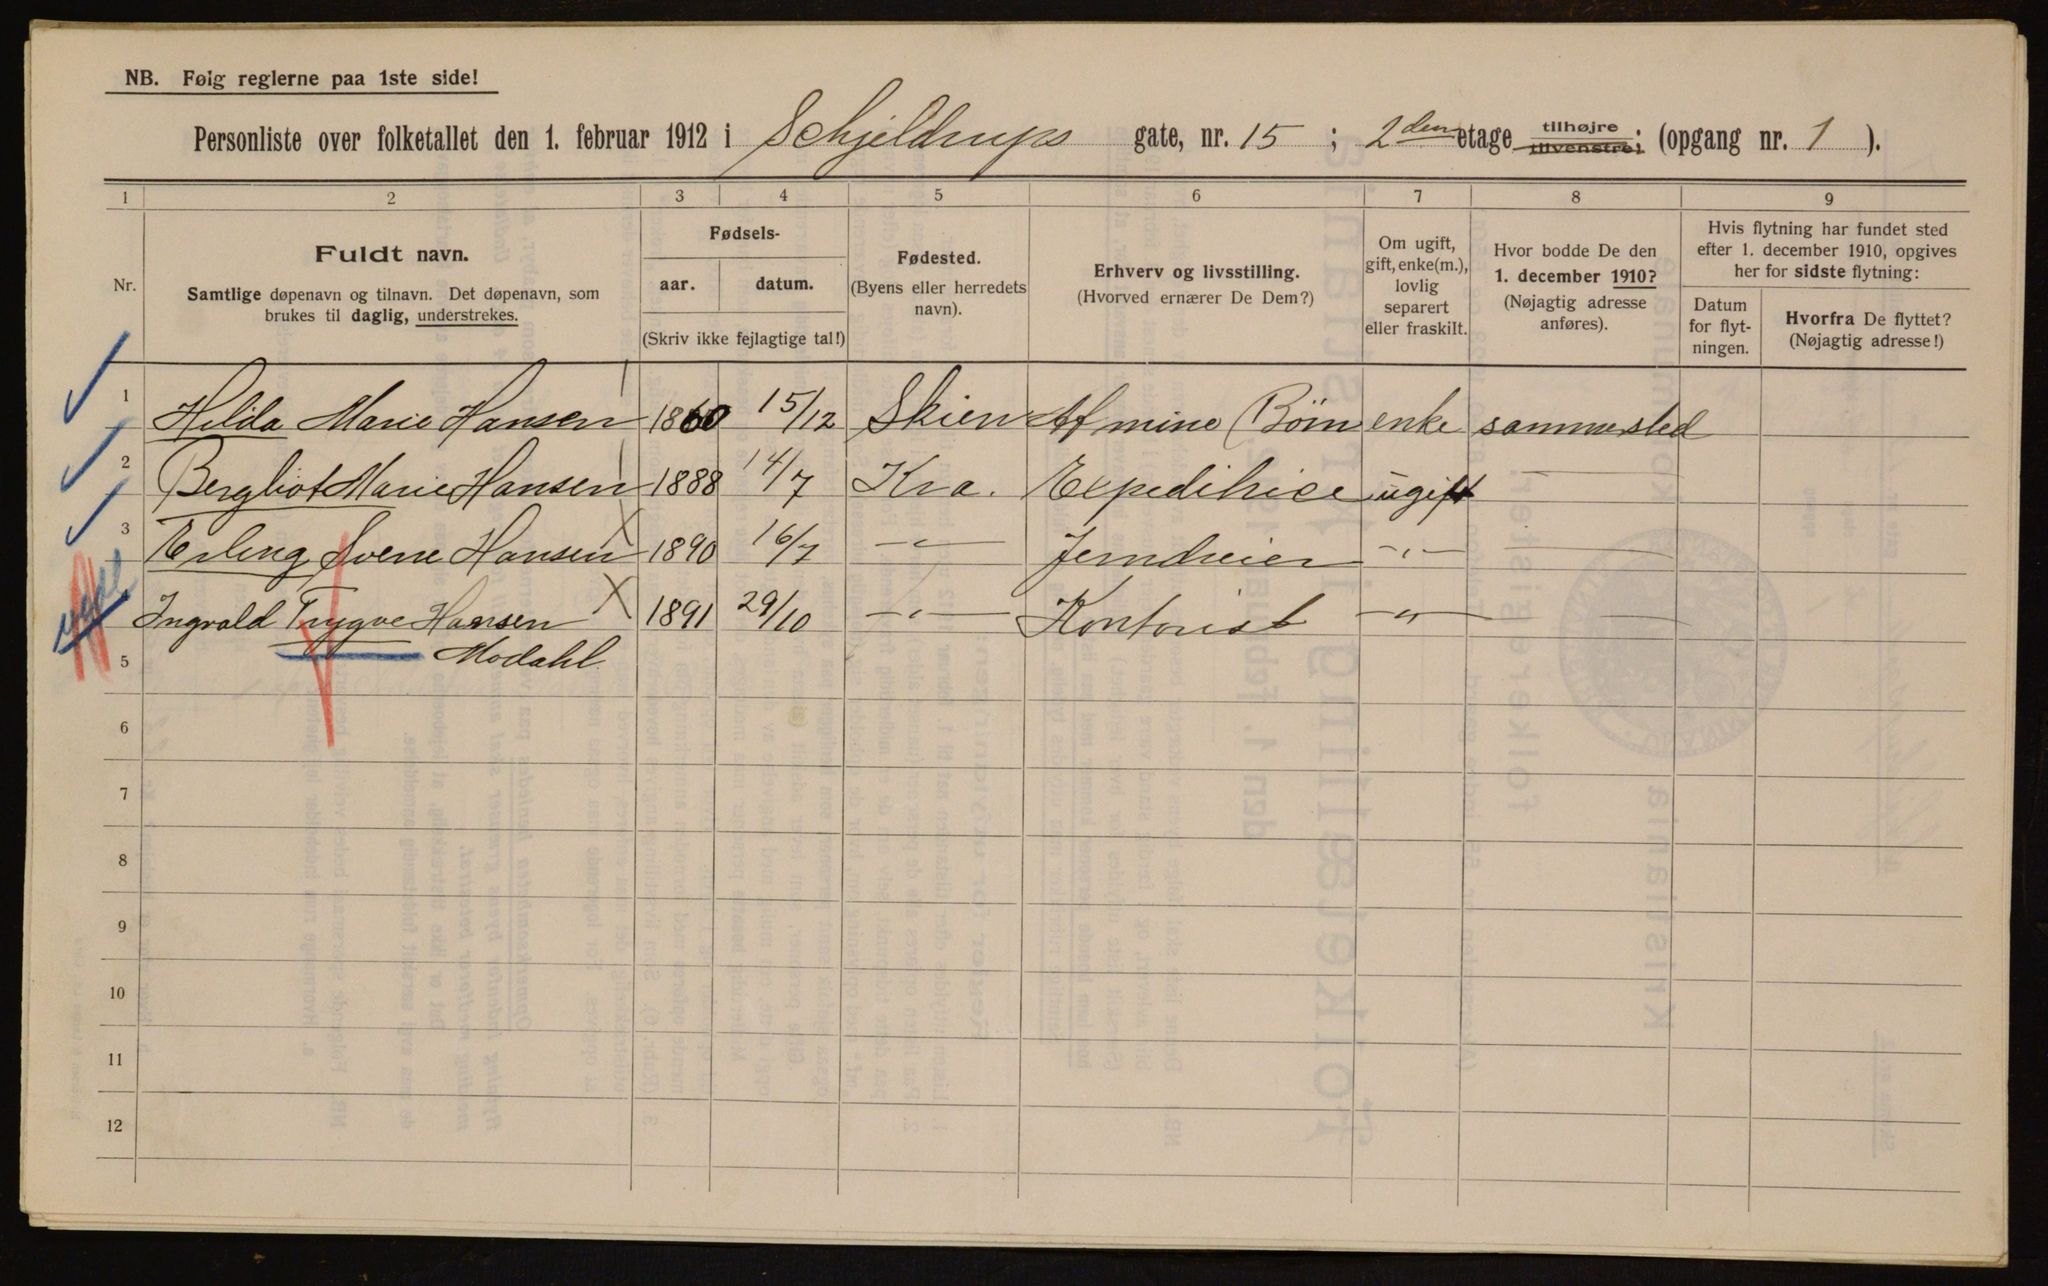 NB. Følg reglerne paa 1ste side!
Personliste over folketallet den 1. februar 1912 i Schjeldrups gate, nr. 15 ; 2den etage tilhøjre tilvenstre; (opgang nr. 1 ).
1 2 3 4 5 6 7 8 9
Nr.
Fuldt navn.
Samtlige døpenavn og tilnavn. Det døpenavn, som
brukes til daglig, understrekes.
Fødsels-
aar. datum.
(Skriv ikke fejlagtige tal!)
Fødested.
(Byens eller herredets
navn).
Erhverv og livsstilling.
(Hvorved ernærer De Dem?)
Om ugift,
gift, enke(m.),
lovlig
separert
eller fraskilt.
Hvor bodde De den
1. december 1910?
(Nøjagtig adresse
anføres).
Hvis flytning har fundet sted
efter 1. december 1910, opgives
her for sidste flytning:
Datum
for flyt-
ningen.
Hvorfra De flyttet?
(Nøjagtig adresse!)
1 Hilda Marie Hansen 1860 15/12 Skien Af mine Börn enke sammested
2 Bergliot Marie Hansen 1888 14/7 Kra. Expeditrice ugift —
3 Erling Sverre Hansen 1890 16/7 —"— Jerndreier —"— —
4 Ingvald Trygve Hansen 1891 29/10 —"— Kontorist —"— —
5 Modahl.
6
7
8
9
10
11
12